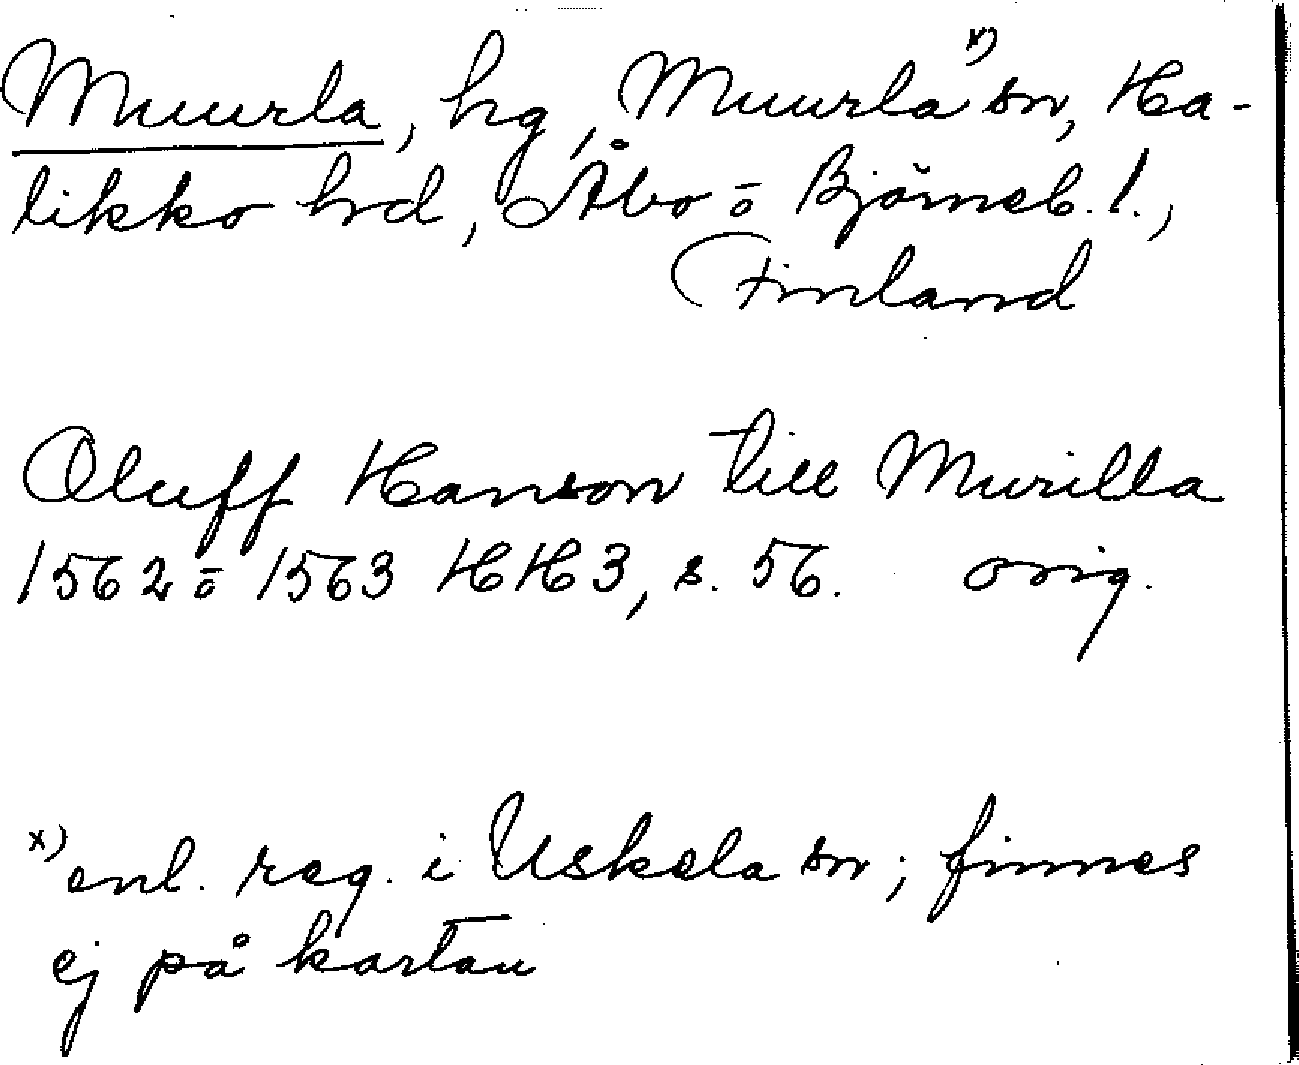 Muurla, hg, Muurla x) sn, Ha-
likko hd, Åbo o Björneb. l.,
Finland
Oluff Hanson till Murilla
1562 o 1563 HH3, s. 56. orig.
x) enl. reg. i Uskela sn; finnes
ej på kartan